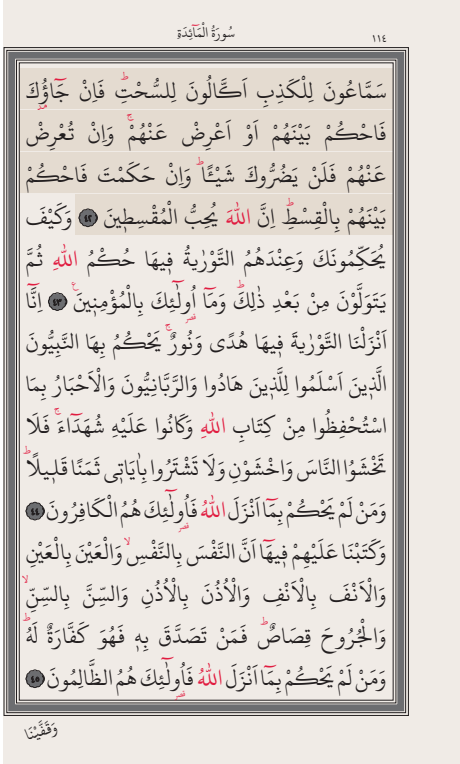 سُورَةُ الْمَائِدَةِ ١١٤
سَمَّاعُونَ لِلْكَذِبِ اَكَّالُونَ لِلسُّحْتِۜ فَاِنْ جَٓاؤُ۫كَ
فَاحْكُمْ بَيْنَهُمْ اَوْ اَعْرِضْ عَنْهُمْۚ وَاِنْ تُعْرِضْ
عَنْهُمْ فَلَنْ يَضُرُّوكَ شَيْـًٔاۜ وَاِنْ حَكَمْتَ فَاحْكُمْ
بَيْنَهُمْ بِالْقِسْطِۜ اِنَّ اللّٰهَ يُحِبُّ الْمُقْسِط۪ينَ ﴿٤٢﴾ وَكَيْفَ
يُحَكِّمُونَكَ وَعِنْدَهُمُ التَّوْرٰيةُ ف۪يهَا حُكْمُ اللّٰهِ ثُمَّ
يَتَوَلَّوْنَ مِنْ بَعْدِ ذٰلِكَۜ وَمَٓا اُو۬لٰٓئِكَ بِالْمُؤْمِن۪ينَ۟ ﴿٤٣﴾ اِنَّٓا
اَنْزَلْنَا التَّوْرٰيةَ ف۪يهَا هُدًى وَنُورٌۚ يَحْكُمُ بِهَا النَّبِيُّونَ
الَّذ۪ينَ اَسْلَمُوا لِلَّذ۪ينَ هَادُوا وَالرَّبَّانِيُّونَ وَالْاَحْبَارُ بِمَا
اسْتُحْفِظُوا مِنْ كِتَابِ اللّٰهِ وَكَانُوا عَلَيْهِ شُهَدَٓاءَۚ فَلَا
تَخْشَوُا النَّاسَ وَاخْشَوْنِ وَلَا تَشْتَرُوا بِاٰيَات۪ي ثَمَنًا قَل۪يلًاۜ
وَمَنْ لَمْ يَحْكُمْ بِمَٓا اَنْزَلَ اللّٰهُ فَاُو۬لٰٓئِكَ هُمُ الْكَافِرُونَ ﴿٤٤﴾
وَكَتَبْنَا عَلَيْهِمْ ف۪يهَٓا اَنَّ النَّفْسَ بِالنَّفْسِۙ وَالْعَيْنَ بِالْعَيْنِ
وَالْاَنْفَ بِالْاَنْفِ وَالْاُذُنَ بِالْاُذُنِ وَالسِّنَّ بِالسِّنِّۙ
وَالْجُرُوحَ قِصَاصٌۜ فَمَنْ تَصَدَّقَ بِه۪ فَهُوَ كَفَّارَةٌ لَهُۜ
وَمَنْ لَمْ يَحْكُمْ بِمَٓا اَنْزَلَ اللّٰهُ فَاُو۬لٰٓئِكَ هُمُ الظَّالِمُونَ ﴿٤٥﴾
وَقَفَّيْنَا